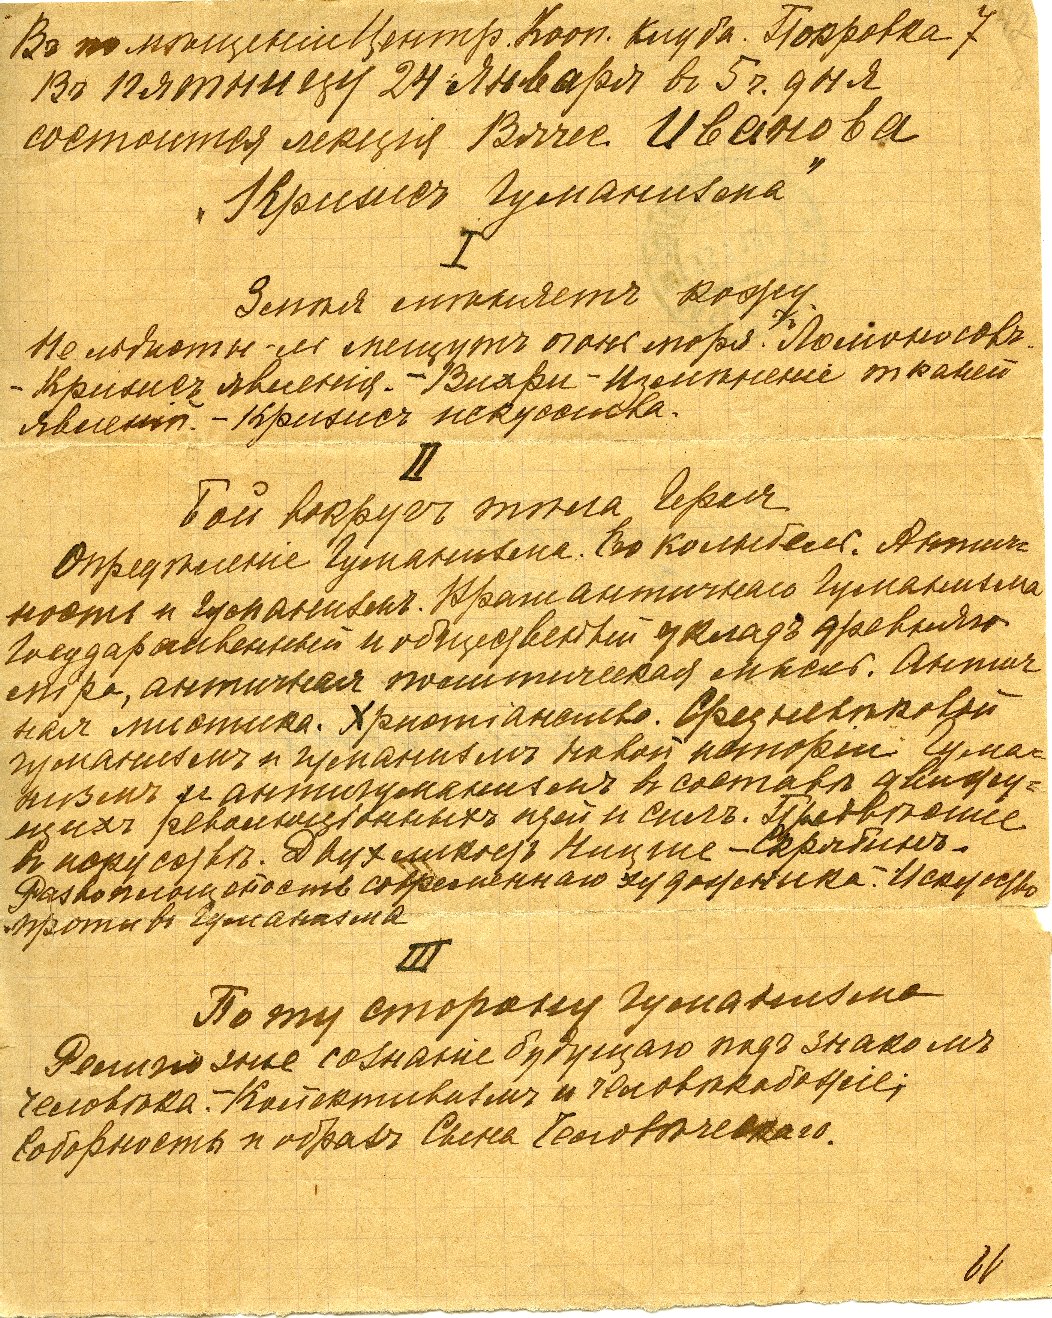 Въ помѣщеніи Центр. Кооп. клуба. Покровка 7
Въ пятницу 24 Января в 5 ч. дня
состоится лекція Вячес. Иванова
„Кризисъ Гуманизма"
I
Земля мѣняетъ кожу.
Не льдисты-ль мещутъ огнь моря? Ломоносовъ.
- Кризисъ явленія. - Вихри - Измѣненіе тканей
явленій. - Кризисъ искусства.
II
Бой вокругъ тѣла Героя
Опредѣленіе Гуманизма. Его колыбель. Антич-
ность и Гуманизмъ. Храм античнаго Гуманизма
Государственный и общественный укладъ древняго
міра, античная политическая мысль. Антич
ная мистика. Христіанство. Средневѣковой
гуманизмъ и гуманизмъ новой исторіи. Гума-
низмъ и антигуманизмъ в составѣ движу-
щихъ революціонныхъ идей и силъ. Предвѣстие
в искусствѣ. Двухликость Ницше - Скрябинъ.
Развоплощеность современнаго художника. Искусство
противъ Гуманизма
III
По ту сторону Гуманизма
Религіозное сознаніе будущаго подъ знакомъ
человѣка. - Колективизмъ и человѣкобожіе;
Соборность и образъ Сына Человѣческаго.
66